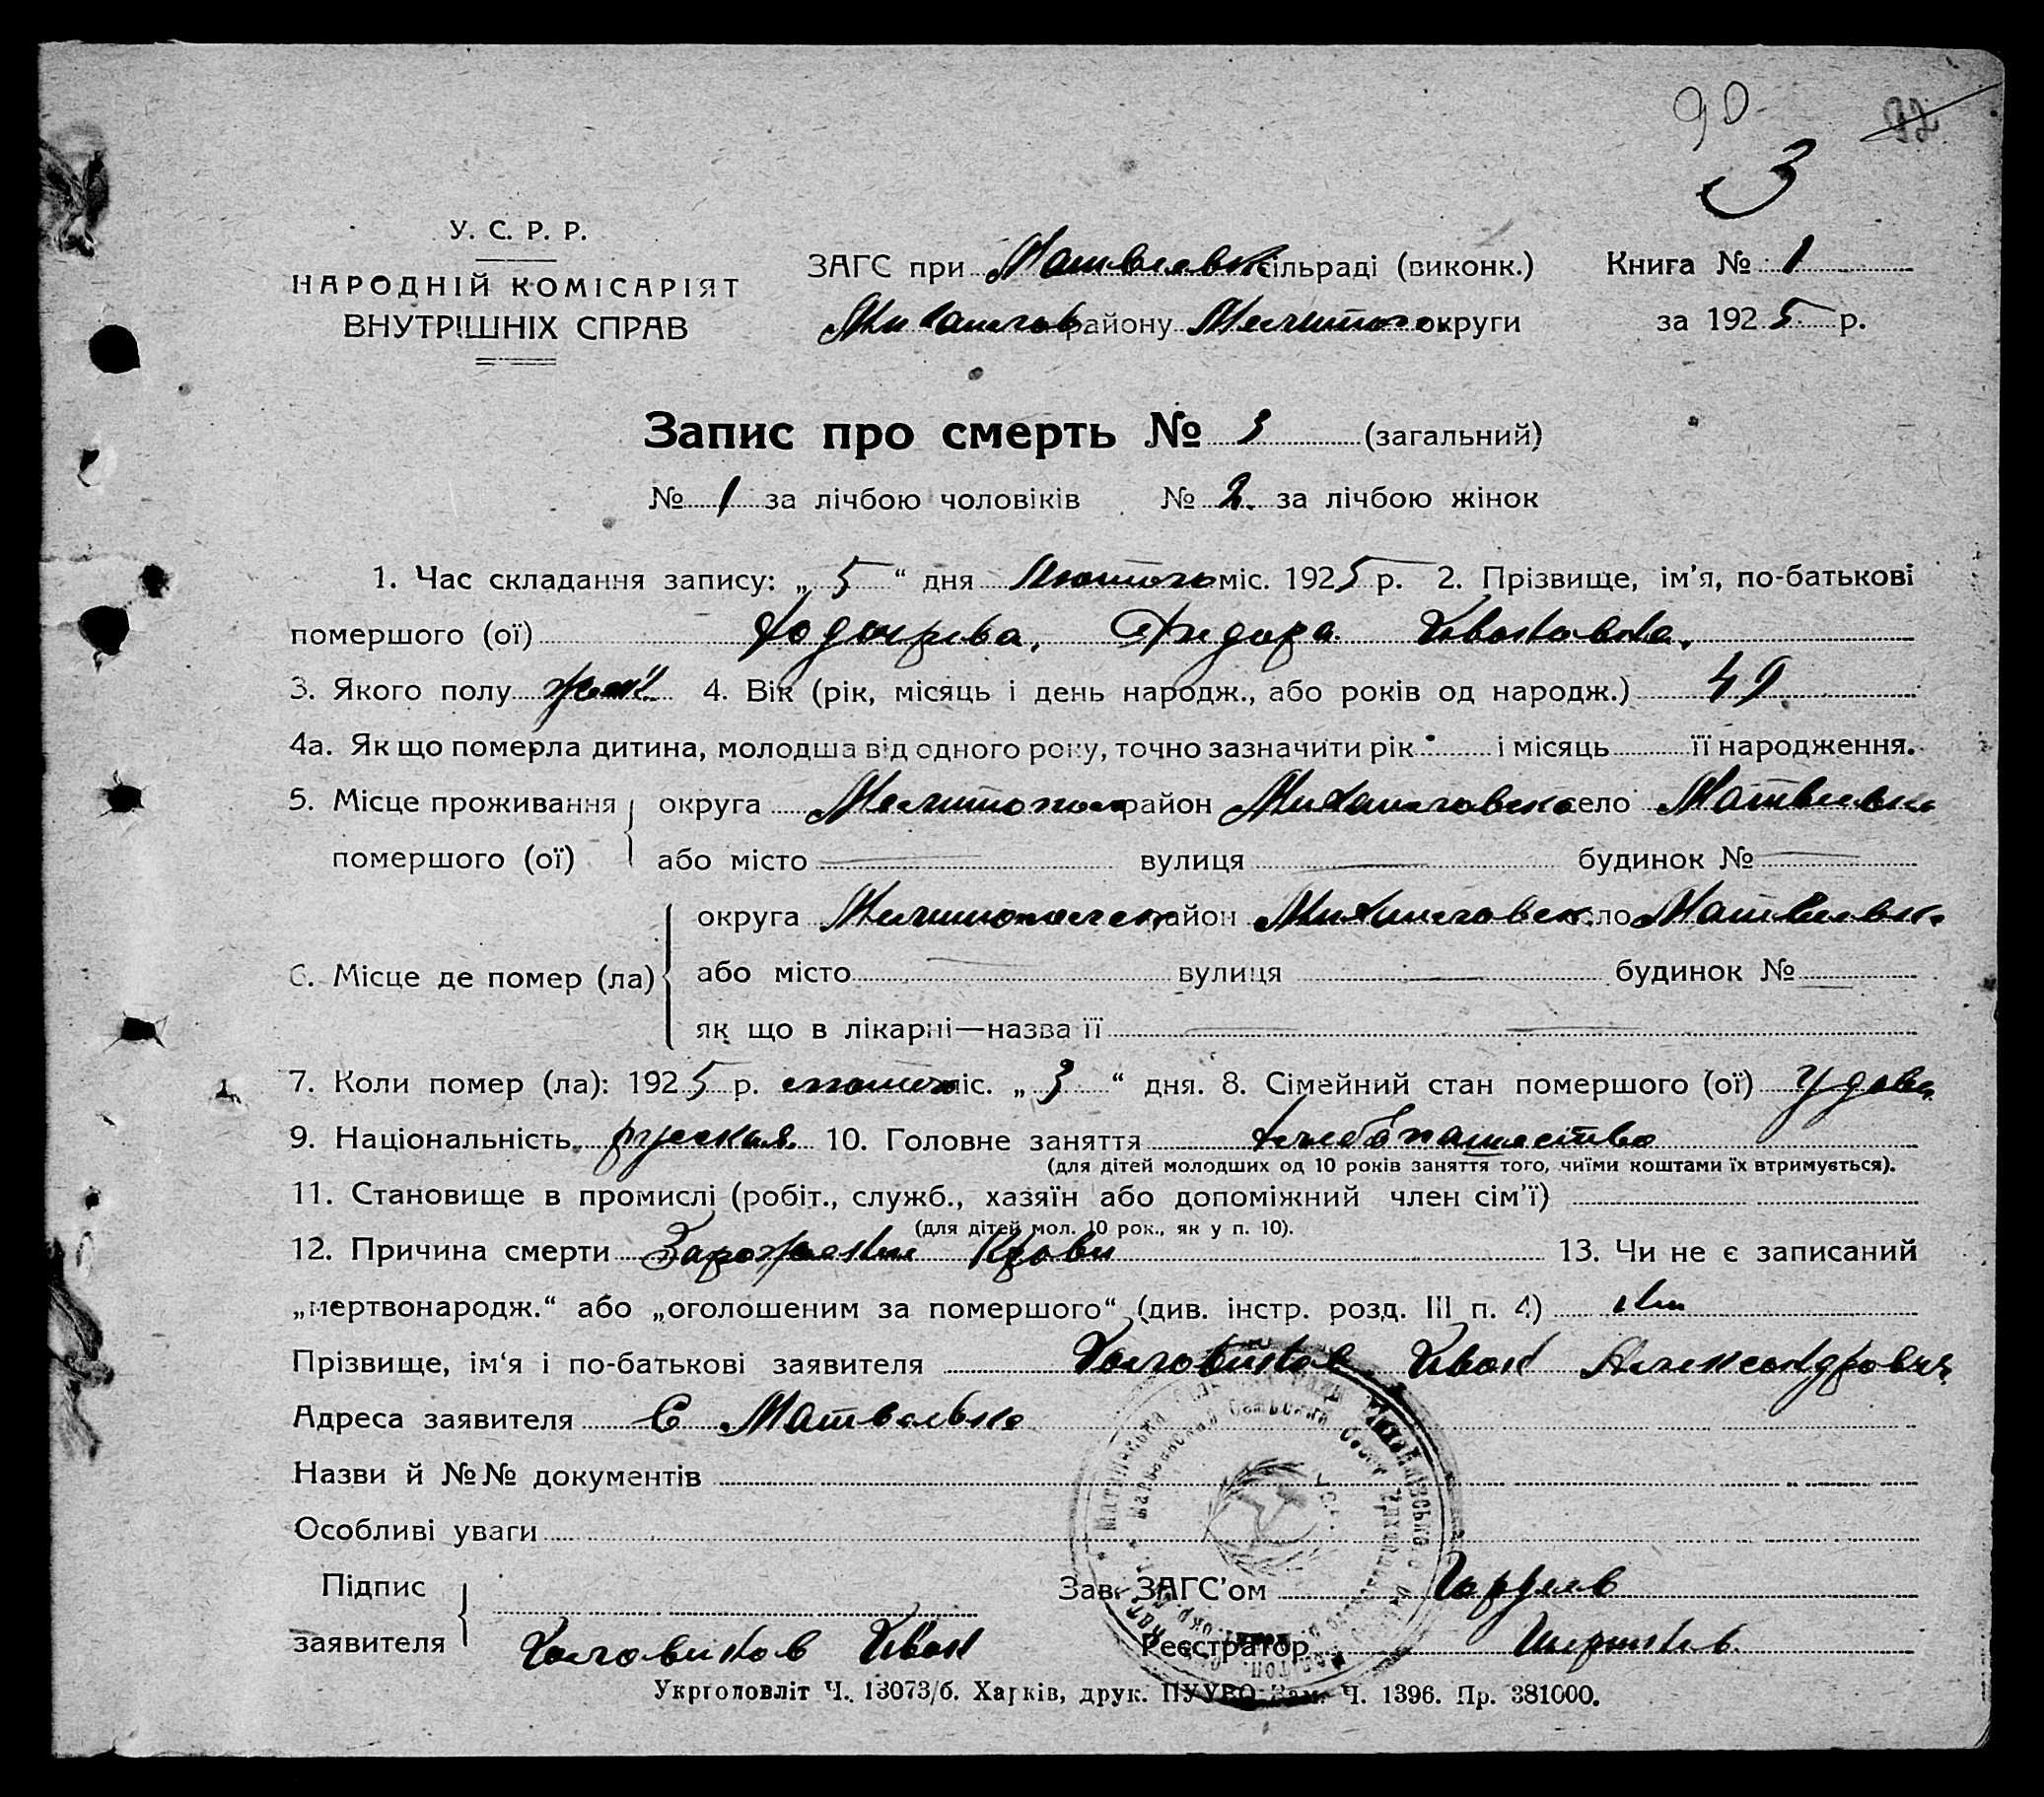 90
3
У. С. Р. Р.
НАРОДНІЙ КОМІСАРІЯТ
ВНУТРІШНІХ СПРАВ
ЗАГС при Матвеевск сільраді (виконк.) Книга № 1
Михайлов району Мелитоп округи за 1925 р.
Запис про смерть № 3 (загальний)
№ 1 за лічбою чоловіків № 2 за лічбою жінок
1. Час складання запису: „ 5 “ дня Лютого міс. 1925 р. 2. Прізвище, ім’я, по-батькові
помершого (ої) Ивановна.
3. Якого полу жен. 4. Вік (рік, місяць і день народж., або років од народж.) 49
4а. Як що померла дитина, молодша від одного року, точно зазначити рік і місяць її народження.
5. Місце проживання помершого (ої) округа Мелитопол район Михайловск село Матвеевка
або місто вулиця будинок №
6. Місце де помер (ла) округа Мелитопольск район Михайловск село Матвеевка
або місто вулиця будинок №
як що в лікарні—назва її
7. Коли помер (ла): 1925 р. лютого міс. „ 3 “ дня. 8. Сімейний стан помершого (ої) Удова
9. Національність русская 10. Головне заняття хлебопашество
(для дітей молодших од 10 років заняття того, чиїми коштами їх втримується).
11. Становище в промислі (робіт., служб., хазяїн або допоміжний член сім’ї)
(для дітей мол. 10 рок., як у п. 10).
12. Причина смерти Заражение Крови 13. Чи не є записаний
„мертвонародж.“ або „оголошеним за помершого“ (див. інстр. розд. III п. 4) Нет
Прізвище, ім‘я і по-батькові заявителя Головинов Иван Александрович
Адреса заявителя С Матвеевка
Назви й №№ документів
Особливі уваги
Підпис заявителя Головинов Иван
Зав. ЗАГС’ом
Реєстратор
Укрголовліт Ч. 13073/б. Харків, друк. ПУУВО Зам. Ч. 1396. Пр. 381000.